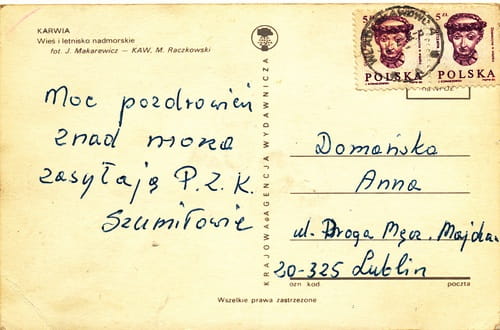 KARWIA
Wieś i letnisko nadmorskie
fot. J. Makarewicz — KAW, M. Raczkowski
Moc pozdrowień
znad morza
zasyłają P.Z.K.
Szumiłowie
KRAJOWA AGENCJA WYDAWNICZA
5 zł
POLSKA
5 zł
POLSKA
Domańska
Anna
ul. Droga Męcz. Majdan.
20-325 Lublin
ozn kod poczta
Wszelkie prawa zastrzeżone